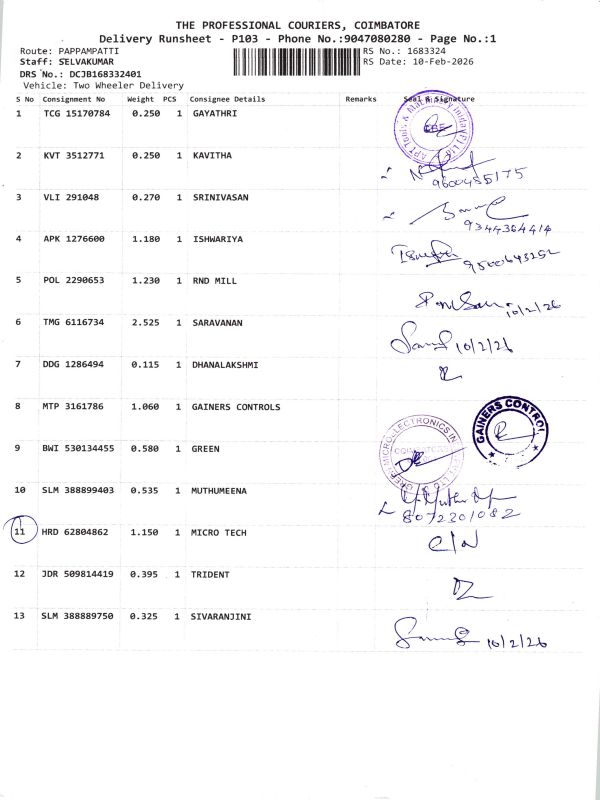 THE PROFESSIONAL COURIERS, COIMBATORE
Delivery Runsheet - P103 - Phone No.:9047080280 - Page No.:1
Route: PAPPAMPATTI RS No.: 1683324
Staff: SELVAKUMAR RS Date: 10-Feb-2026
DRS No.: DCJB168332401
Vehicle: Two Wheeler Delivery
S No Consignment No Weight PCS Consignee Details Remarks Seal & Signature
1 TCG 15170784 0.250 1 GAYATHRI
2 KVT 3512771 0.250 1 KAVITHA
9600455175
3 VLI 291048 0.270 1 SRINIVASAN
9344364414
4 APK 1276600 1.180 1 ISHWARIYA
5 POL 2290653 1.230 1 RND MILL
10/2/26
6 TMG 6116734 2.525 1 SARAVANAN
10/2/26
7 DDG 1286494 0.115 1 DHANALAKSHMI
8 MTP 3161786 1.060 1 GAINERS CONTROLS
GAINERS CONTROL
9 BWI 530134455 0.580 1 GREEN
MICROELECTRONICS
10 SLM 388899403 0.535 1 MUTHUMEENA
8072301082
11 HRD 62804862 1.150 1 MICRO TECH
12 JDR 509814419 0.395 1 TRIDENT
13 SLM 388889750 0.325 1 SIVARANJINI
10/2/26